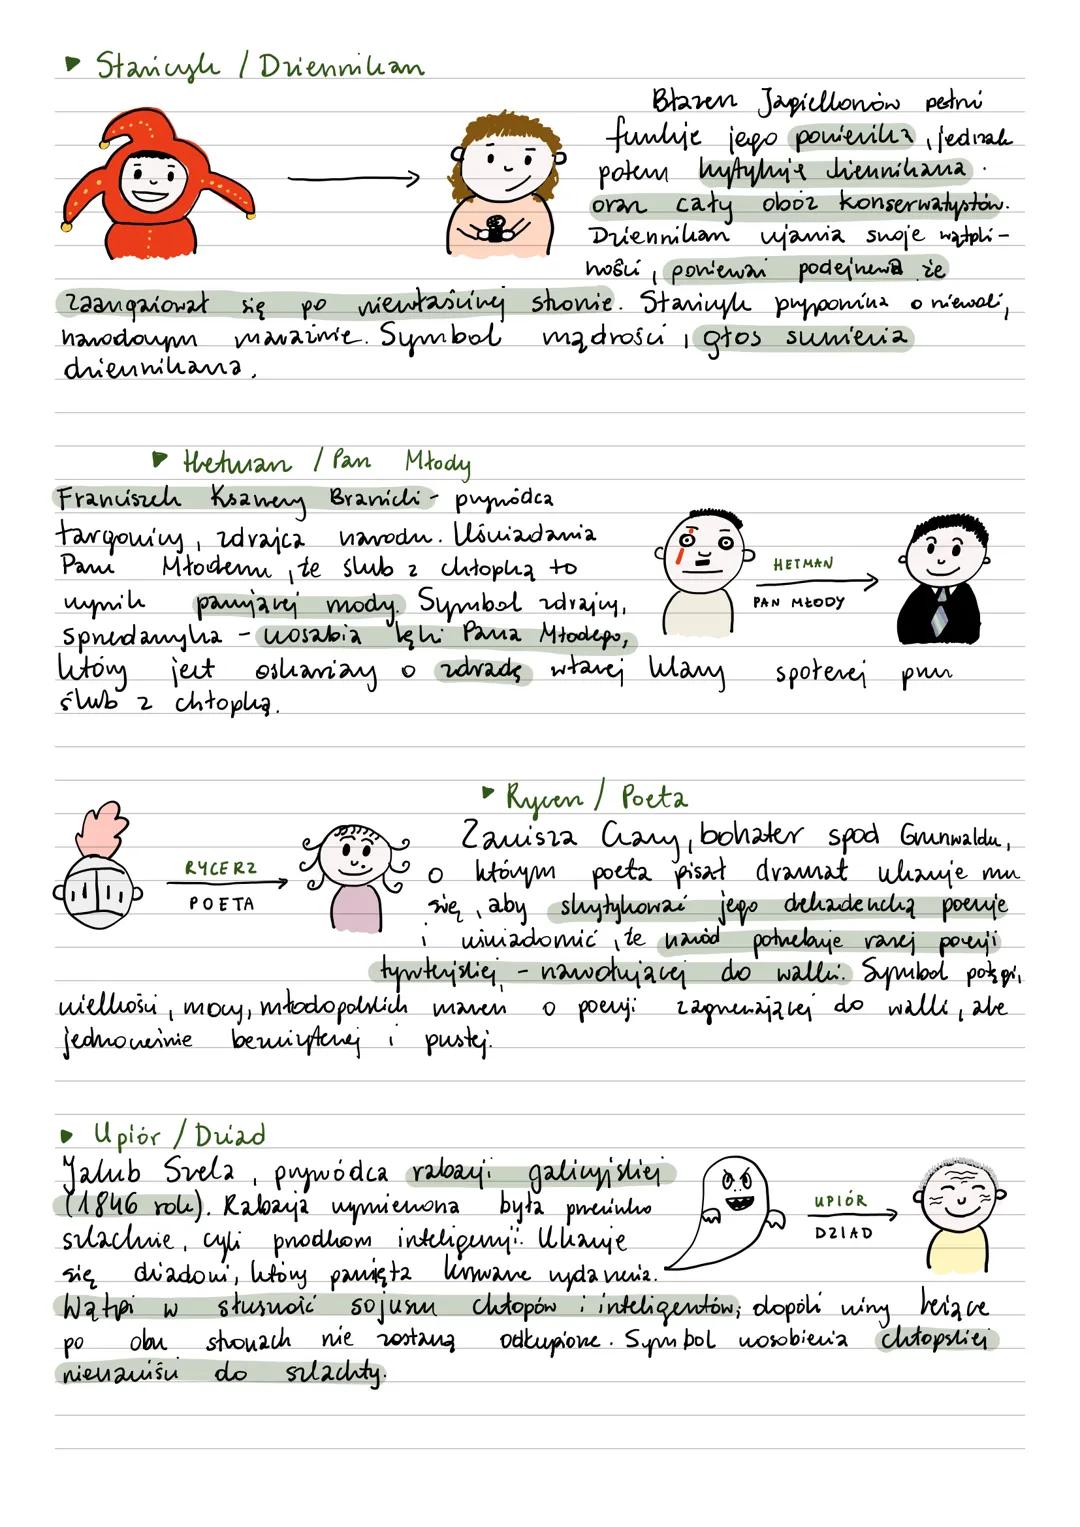 ▸ Stańczyk / Dziennikarz
Błazen Jagiellonów pełni
funkcję jego powiernika, jednak
potem krytykuje dziennikarza
oraz cały obóz konserwatystów.
Dziennikarz ujawnia swoje wątpli-
wości, ponieważ podejrzewa że
zaangażował się po niewłaściwej stronie. Stańczyk przypomina o niewoli,
narodowym marazmie. Symbol mądrości, głos sumienia
dziennikarza.
▸ Hetman / Pan Młody
Franciszek Ksawery Branicki - przywódca
targowicy, zdrajca narodu. Uświadamia
Panu Młodemu, że ślub z chłopką to
wynik panującej mody. Symbol zdrajcy,
sprzedawczyka - uosabia lęki Pana Młodego,
HETMAN
PAN MŁODY
który jest oskarżany o zdradę własnej klasy społecznej przez
ślub z chłopką.
▸ Rycerz / Poeta
Zawisza Czarny, bohater spod Grunwaldu,
RYCERZ
POETA
o którym poeta pisał dramat ukazuje mu
się, aby skrytykować jego dekadencką poezję
i uświadomić, że naród potrzebuje raczej poezji
tyrtejskiej - nawołującej do walki. Symbol potęgi,
wielkości, mocy, młodopolskich marzeń o poezji zagrzewającej do walki, ale
jednocześnie bezużytecznej i pustej.
▸ Upiór / Dziad
Jakub Szela, przywódca rabacji galicyjskiej
(1846 rok). Rabacja wymierzona była przeciwko
szlachcie, czyli przodkom inteligencji. Ukazuje
się dziadowi, który pamięta krwawe wydarzenia.
UPIÓR
DZIAD
Wątpi w słuszność sojuszu chłopów i inteligentów; dopóki winy leżące
po obu stronach nie zostaną odkupione. Symbol uosobienia chłopskiej
nienawiści do szlachty.